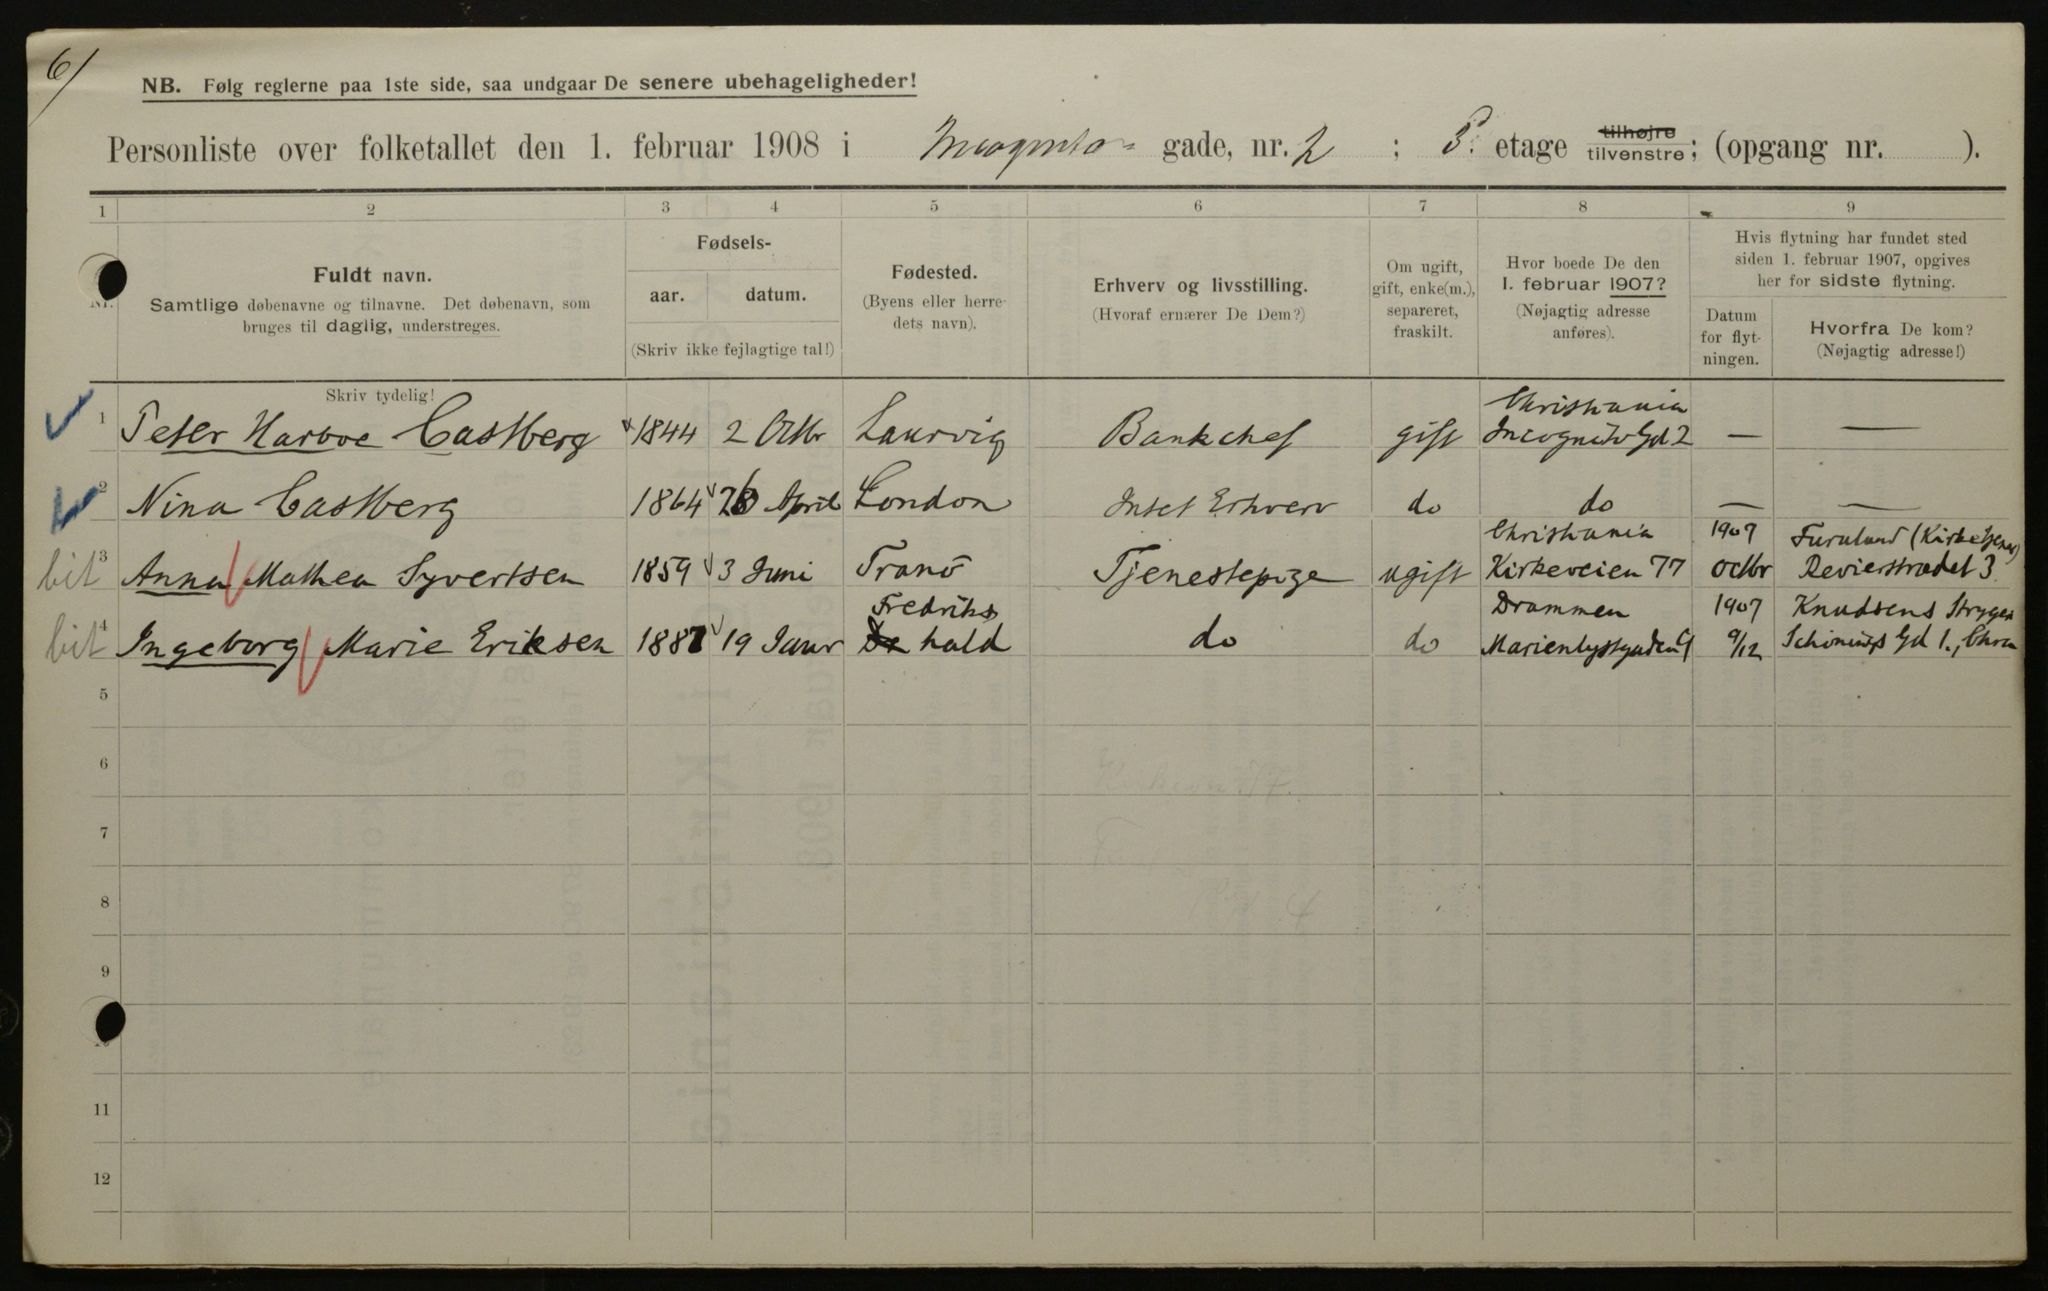 6/
NB. Følg reglerne paa 1ste side, saa undgaar De senere ubehageligheder!
Personliste over folketallet den 1. februar 1908 i Incognito- gade, nr. 2 ; etage tilhøjre tilvenstre; (opgang nr. ).
1 2 3 4 5 6 7 8 9
Nr.
Fuldt navn.
Samtlige døbenavne og tilnavne. Det døbenavn, som
bruges til daglig, understreges.
Skriv tydelig!
Fødsels-
aar. datum.
(Skriv ikke fejlagtige tal!)
Fødested.
(Byens eller herre-
dets navn).
Erhverv og livsstilling.
(Hvoraf ernærer De Dem?)
Om ugift,
gift, enke(m.),
separeret,
fraskilt.
Hvor boede De den
1. februar 1907?
(Nøjagtig adresse
anføres).
Hvis flytning har fundet sted
siden 1. februar 1907, opgives
her for sidste flytning.
Datum
for flyt-
ningen.
Hvorfra De kom?
(Nøjagtig adresse!)
Christiania
1 Peter Harboe Castberg 1844 2 Octbr Laurvig Bankchef gift Incognito Gd 2 — —
2 Nina Castberg 1864 April London Intet Erhverv do do — —
Christiania 1907 Furulund
bit 3 Anna Mathea Syvertsen 1859 3 Juni Tranö Tjenestepige ugift Kirkeveien 77 Octbr Revierstrædet 3
Fredriks Drammen 1907 Knudsens Stryger
bit 4 Ingeborg Marie Eriksen 1887 19 Janr hald do do Marienlystgaden 9/12 Schönings Gd 1., Chra
5
6
7
8
9
10
11
12